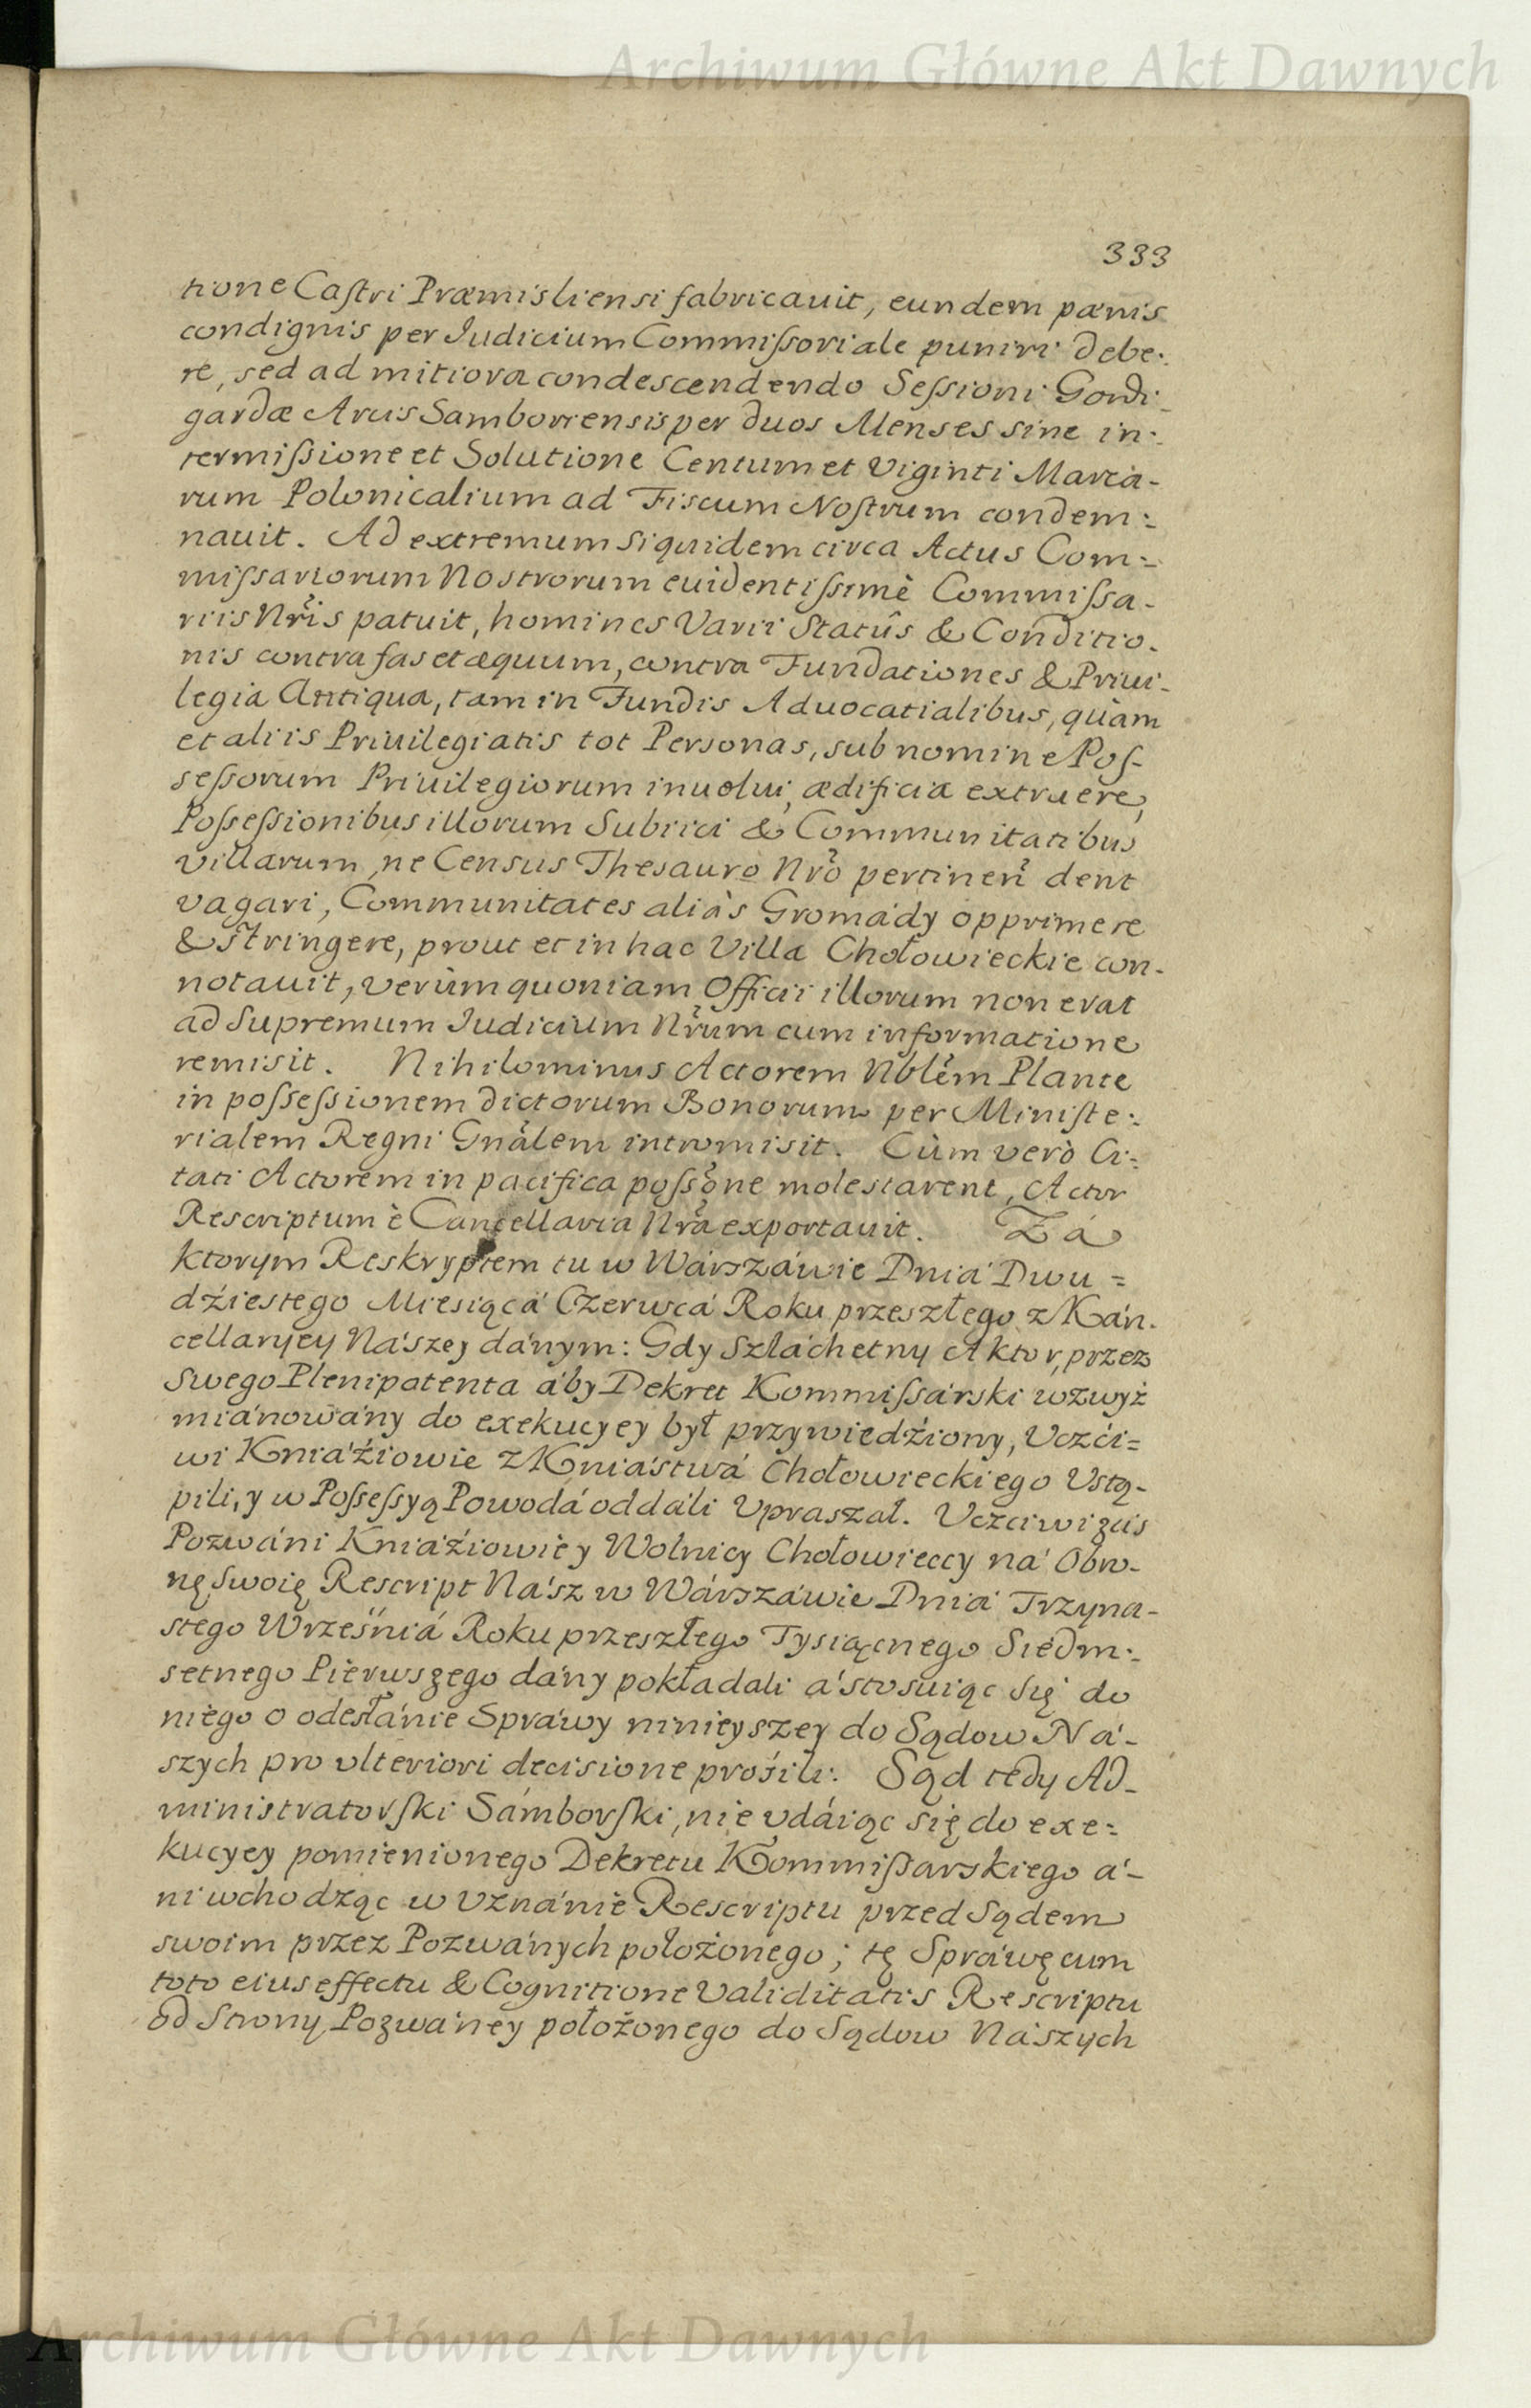 Archiwum Główne Akt Dawnych
333
tione Caſtri Præmisliensi fabricauit, eundem pœnis
condignis per Iudicium Commiſsoriale puniri debe:
re, sed ad mitiora condescendendo Seſsioni Gordi
gardæ Arcis Samboriensis per duos Menses sine in:
termiſsione et Solutione Centum et Viginti Marca-
rum Polonicalium ad Fiscum Noſtrum condem:
nauit. Ad extremum siquidem circa Actus Com:
miſsariorum Nostrorum euidentiſsimè Commiſsa-
riis Nr̃is patuit, homines Varii Statûs & Conditio-
nis contra fas et æquum, contra Fundationes & Priui-
legia Antiqua, tam in Fundis Aduocatialibus, quàm
et aliis Priuilegiatis tot Personas, sub nomine Poſ-
seſsorum Priuilegiorum inuolui, ædificia extruere,
Poſseſsionibus illorum Subiici & Communitatibus
villarum, ne Census Thesauro Nr̃o pertineñ dent
vagari, Communitates aliàs Gromády opprimere
& stringere, prout et in hac Villa Chołowieckie con-
notauit, verùm quoniam Officii illorum non erat
ad Supremum Iudicium Nr̃um cum informatione
remisit. Nihilominus Actorem Nobl̃em Plante
in poſseſsionem dictorum Bonorum per Miniſte:
rialem Regni Gñalem intromisit. Cùm verò Ci:
tati Actorem in pacifica poſsõne molestarent, Actor
Rescriptum è Cancellaria Nr̃a exportauit. Zá
ktorym Reskryptem tu w Wárszáwie Dniá Dwu =
dźiestego Mieśiącá Czerwcá Roku przeszłego z Kán-
cellaryey Nászey dánym: Gdy Szláchetny Aktor, przez
Swego Plenipotenta áby Dekret Kommiſsárski wzwyż
miánowány do exekucyey był przywiedźiony, Uczći=
wi Kniáźiowie z Kniástwá Chołowieckiego Ustą-
pili, y w Poſseſsyą Powodá oddáli Upraszał. Uczciwi zás
Pozwáni Kniáźiowie y Wolnicy Chołowieccy ná Obro-
nę Swoię Rescript Nász w Wárszáwie Dniá Trzyna-
stego Wrześniá Roku przeszłego Tysiącnego Siedm:
setnego Pierwszego dány pokładali á stosuiąc się do
niego o odesłánie Spráwy ninieyszey do Sądow Ná-
szych pro ulteriori decisione prośili. Sąd tedy Ad-
ministratorſki Sámborſki, nie udáiąc się do exe:
kucyey pomienionego Dekretu Kommiſsarskiego á-
ni wchodząc w Uznánie Rescriptu przed Sądem
swoim przez Pozwánych położonego; tę Spráwę cum
toto eius effectu & Cognitione Validitatis Rescriptu
od Strony Pozwáney położonego do Sądow Nászych
Archiwum Główne Akt Dawnych